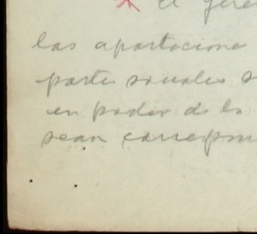 el gere
las aportacione
partes sociales s
en poder de lo
sean correspon